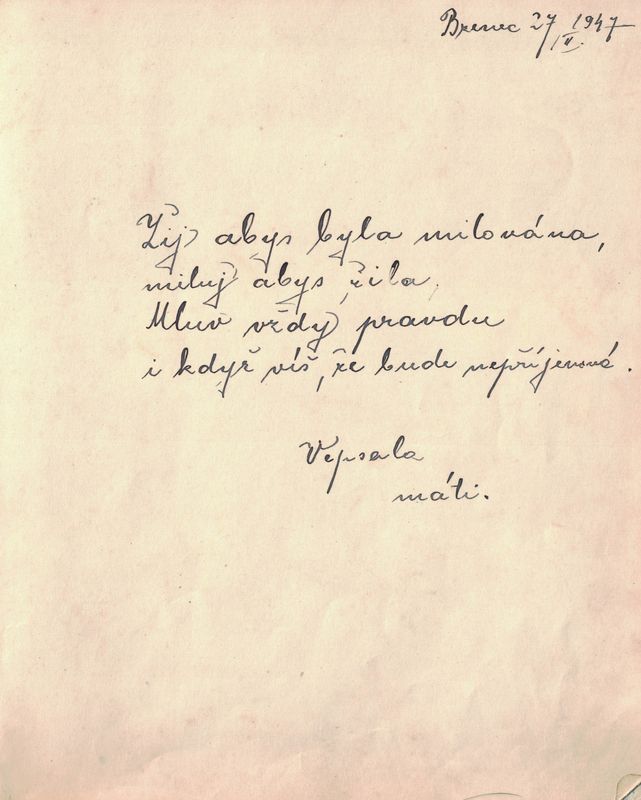 Brenec 27/II. 1947
Žij abys byla milována,
miluj abys žila.
Mluv vždy pravdu
i když víš, že bude nepříjemná.
Vepsala
máti.